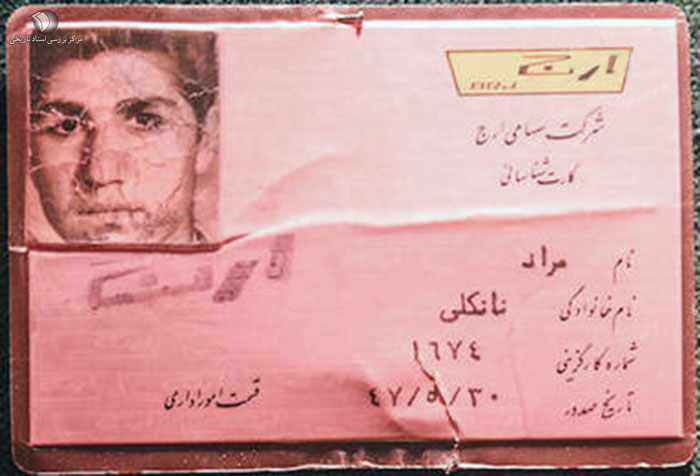 مرکز بررسی اسناد تاریخی
ارج
ARJ
شرکت سهامی ارج
کارت شناسائی
نام مراد
نام خانوادگی نانکلی
شماره کارگزینی ١٦٧٤
تاریخ صدور ٤٧/٥/٣٠
قسمت امور اداری
ارج